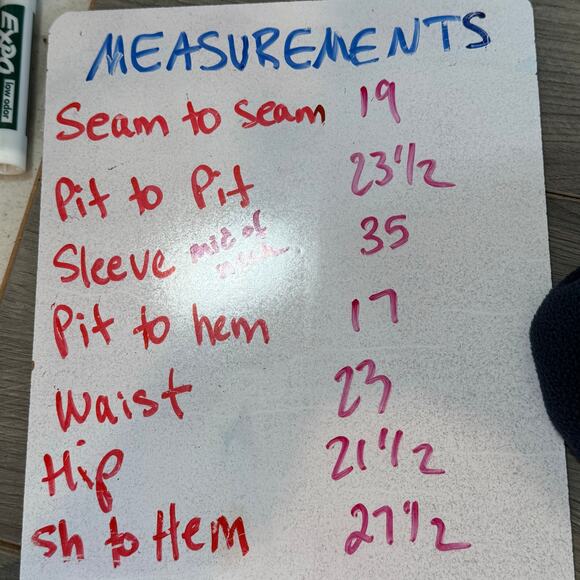 EXPO
low odor
MEASUREMENTS
Seam to Seam 19
Pit to Pit 23 1/2
Sleeve mid of neck 35
Pit to hem 17
Waist 23
Hip 21 1/2
Sh to Hem 27 1/2